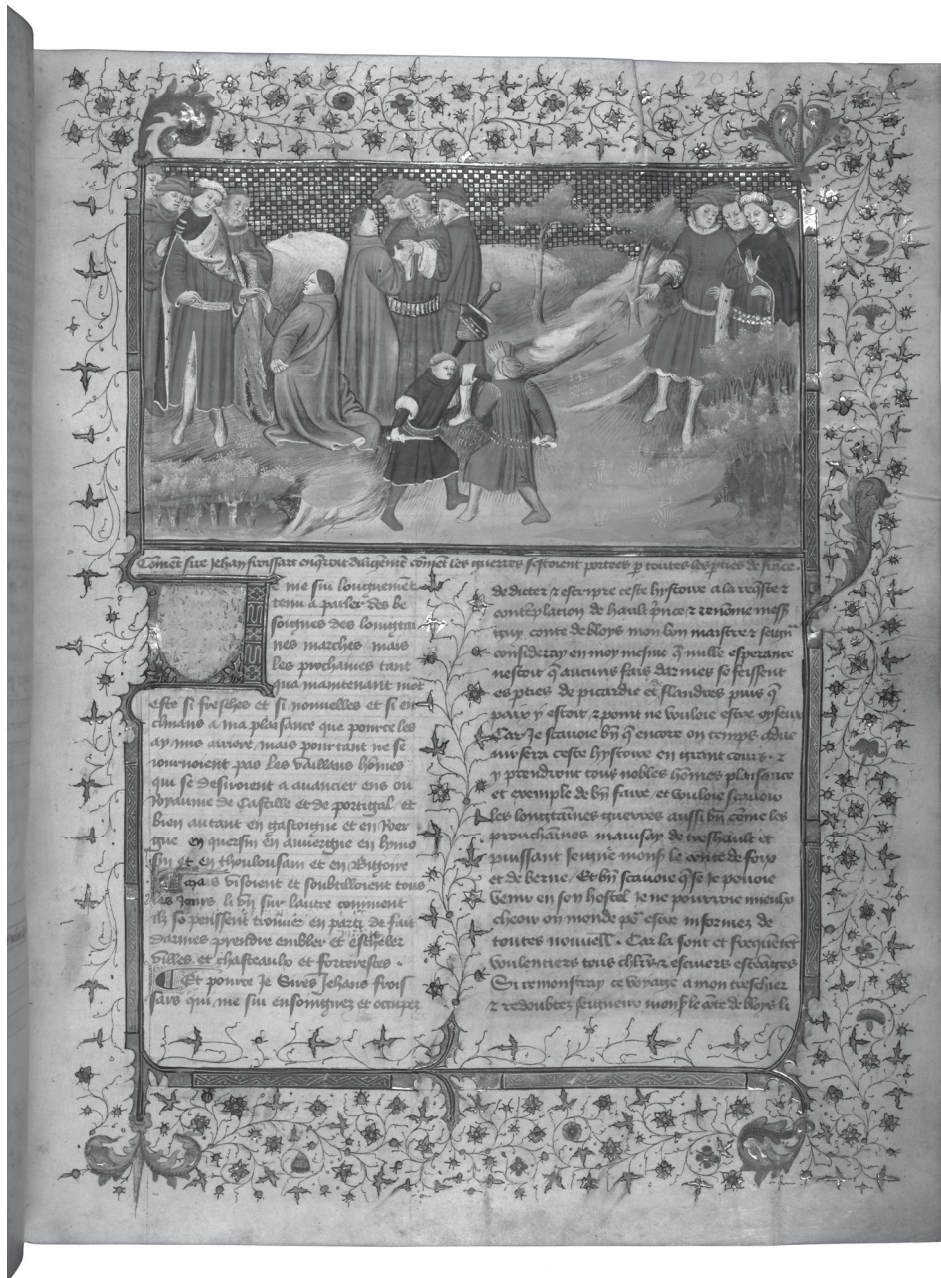 201
Coment sire Jehan froissart enqueroit diligement coment les guerres sestoient portees p toutes les pties de france.
e me sui longuement
tenu a parler des be
soignes des longtai
nes marches, mais
les prochaines tant
qua maintenant mont
este si fresches et si nouvelles et si en
clinans a ma plaisance que pource les
ay mis arriere, mais pourtant ne se
iournoient pas les vaillans hommes
qui se desiroient a avancier ens ou
Royaume de Castille et de portigal, et
bien autant en gascoigne et en Roer
gue en quersin en auvergne en lymo
sin et en thoulousain et en Bigorre
mais visoient et soubtilloient tous
les Jours li un sur lautre comment
ilz se peussent trouver en parti de fait
darmes prendre embler et escheler
villes et chasteaulx et forteresces.
Et pource Je Sires Jehans frois
sars qui me sui ensoignez et occupez
de dicter et escripre ceste hystoire a la requeste et
contemplation de hault pnce et renome mess
guy conte de bloys mon bon maistre et seignr
consideray en moy mesme q nulle esperance
nestoit q aucuns fais darmes se feissent
es pties de picardie et flandres puis q
paix y estoit, et point ne vouloie estre oyseux
Car Je scavoie bn q encore ou temps adve
nir sera ceste hystoire en grant cours. et
y prendront tous nobles homes plaisance
et exemple de bn faire, et vouloie scavoir
les longtaines guerres aussi bn come les
prouchaines mavisay de treshault et
puissant seigne monss le conte de foix
et de berne, Et bn scavoie q se Je povoie
venir en son hostel Je ne pourroie mieulx
cheoir ou monde po estre informez de
toutes nouvell. Car la sont et frequetet
voulentiers tous chlrs et escuiers estrages
Si remonstray ce voyage a mon treschier
et redoubte seigneur monss le cote de bloys li